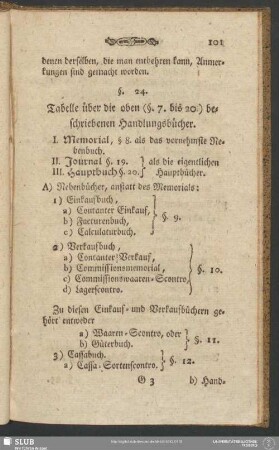 101
denen derselben, die man entbehren kann, Anmer-
kungen sind gemacht worden.
§. 24.
Tabelle über die oben (§. 7. bis 20.) be-
schriebenen Handlungsbücher.
I. Memorial, § 8. als das vornehmste Ne-
benbuch.
II. Journal §. 19. } als die eigentlichen
III. Hauptbuch §. 20. } Hauptbücher.
A) Nebenbücher, anstatt des Memorials:
1) Einkaufbuch,
a) Contanter Einkauf,
b) Facturenbuch,
c) Calculaturbuch. } §. 9.
2) Verkaufbuch,
a) Contanter Verkauf,
b) Commissionsmemorial,
c) Commissionswaaren-Scontro,
d) Lagerscontro. } §. 10.
Zu diesen Einkauf- und Verkaufbüchern ge-
hört entweder
a) Waaren-Scontro, oder
b) Güterbuch. } §. 11.
3) Cassabuch.
a) Cassa-Sortenscontro. } §. 12.
G 3 b) Hand-
SLUB